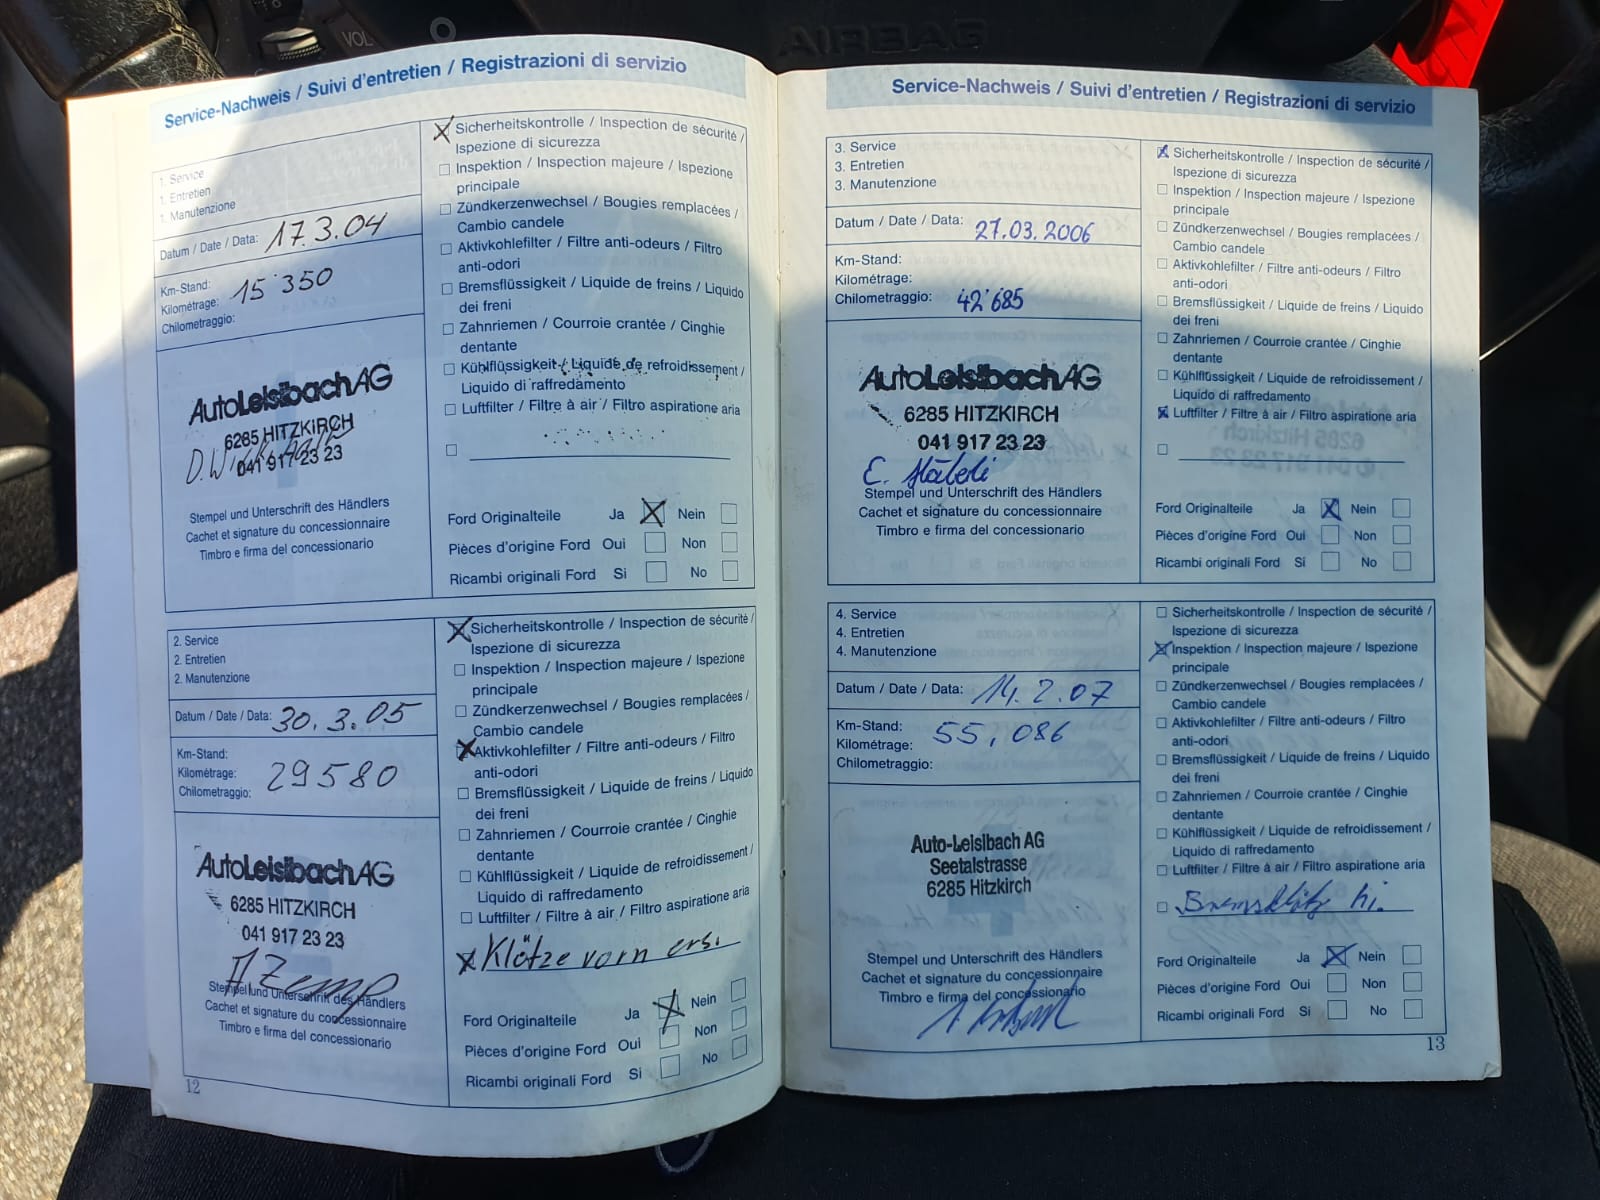 VOL
AIRBAG
Service-Nachweis / Suivi d'entretien / Registrazioni di servizio
1. Service
1. Entretien
1. Manutenzione
Datum / Date / Data: 17.3.04
Km-Stand:
Kilométrage: 15'350
Chilometraggio:
AutoLeisibachAG
6285 HITZKIRCH
041 917 23 23
Stempel und Unterschrift des Händlers
Cachet et signature du concessionnaire
Timbro e firma del concessionario
Sicherheitskontrolle / Inspection de sécurité /
Ispezione di sicurezza
Inspektion / Inspection majeure / Ispezione
principale
Zündkerzenwechsel / Bougies remplacées /
Cambio candele
Aktivkohlefilter / Filtre anti-odeurs / Filtro
anti-odori
Bremsflüssigkeit / Liquide de freins / Liquido
dei freni
Zahnriemen / Courroie crantée / Cinghie
dentante
Kühlflüssigkeit / Liquide de refroidissement /
Liquido di raffredamento
Luftfilter / Filtre à air / Filtro aspiratione aria
Ford Originalteile Ja Nein
Pièces d'origine Ford Oui Non
Ricambi originali Ford Si No
2. Service
2. Entretien
2. Manutenzione
Datum / Date / Data: 30.3.05
Km-Stand:
Kilométrage: 29580
Chilometraggio:
AutoLeisibachAG
6285 HITZKIRCH
041 917 23 23
A Zemp
Stempel und Unterschrift des Händlers
Cachet et signature du concessionnaire
Timbro e firma del concessionario
Sicherheitskontrolle / Inspection de sécurité /
Ispezione di sicurezza
Inspektion / Inspection majeure / Ispezione
principale
Zündkerzenwechsel / Bougies remplacées /
Cambio candele
Aktivkohlefilter / Filtre anti-odeurs / Filtro
anti-odori
Bremsflüssigkeit / Liquide de freins / Liquido
dei freni
Zahnriemen / Courroie crantée / Cinghie
dentante
Kühlflüssigkeit / Liquide de refroidissement /
Liquido di raffredamento
Luftfilter / Filtre à air / Filtro aspiratione aria
Klötze vorn ers.
Ford Originalteile Ja Nein
Pièces d'origine Ford Oui Non
Ricambi originali Ford Si No
12
Service-Nachweis / Suivi d'entretien / Registrazioni di servizio
3. Service
3. Entretien
3. Manutenzione
Datum / Date / Data: 27.03.2006
Km-Stand:
Kilométrage:
Chilometraggio: 42'685
AutoLeisibachAG
6285 HITZKIRCH
041 917 23 23
Stempel und Unterschrift des Händlers
Cachet et signature du concessionnaire
Timbro e firma del concessionario
Sicherheitskontrolle / Inspection de sécurité /
Ispezione di sicurezza
Inspektion / Inspection majeure / Ispezione
principale
Zündkerzenwechsel / Bougies remplacées /
Cambio candele
Aktivkohlefilter / Filtre anti-odeurs / Filtro
anti-odori
Bremsflüssigkeit / Liquide de freins / Liquido
dei freni
Zahnriemen / Courroie crantée / Cinghie
dentante
Kühlflüssigkeit / Liquide de refroidissement /
Liquido di raffredamento
Luftfilter / Filtre à air / Filtro aspiratione aria
Ford Originalteile Ja Nein
Pièces d'origine Ford Oui Non
Ricambi originali Ford Si No
4. Service
4. Entretien
4. Manutenzione
Datum / Date / Data: 14.2.07
Km-Stand:
Kilométrage: 55,086
Chilometraggio:
Auto-Leisibach AG
Seetalstrasse
6285 Hitzkirch
Stempel und Unterschrift des Händlers
Cachet et signature du concessionnaire
Timbro e firma del concessionario
Sicherheitskontrolle / Inspection de sécurité /
Ispezione di sicurezza
Inspektion / Inspection majeure / Ispezione
principale
Zündkerzenwechsel / Bougies remplacées /
Cambio candele
Aktivkohlefilter / Filtre anti-odeurs / Filtro
anti-odori
Bremsflüssigkeit / Liquide de freins / Liquido
dei freni
Zahnriemen / Courroie crantée / Cinghie
dentante
Kühlflüssigkeit / Liquide de refroidissement /
Liquido di raffredamento
Luftfilter / Filtre à air / Filtro aspiratione aria
Bremsklötz hi.
Ford Originalteile Ja Nein
Pièces d'origine Ford Oui Non
Ricambi originali Ford Si No
13